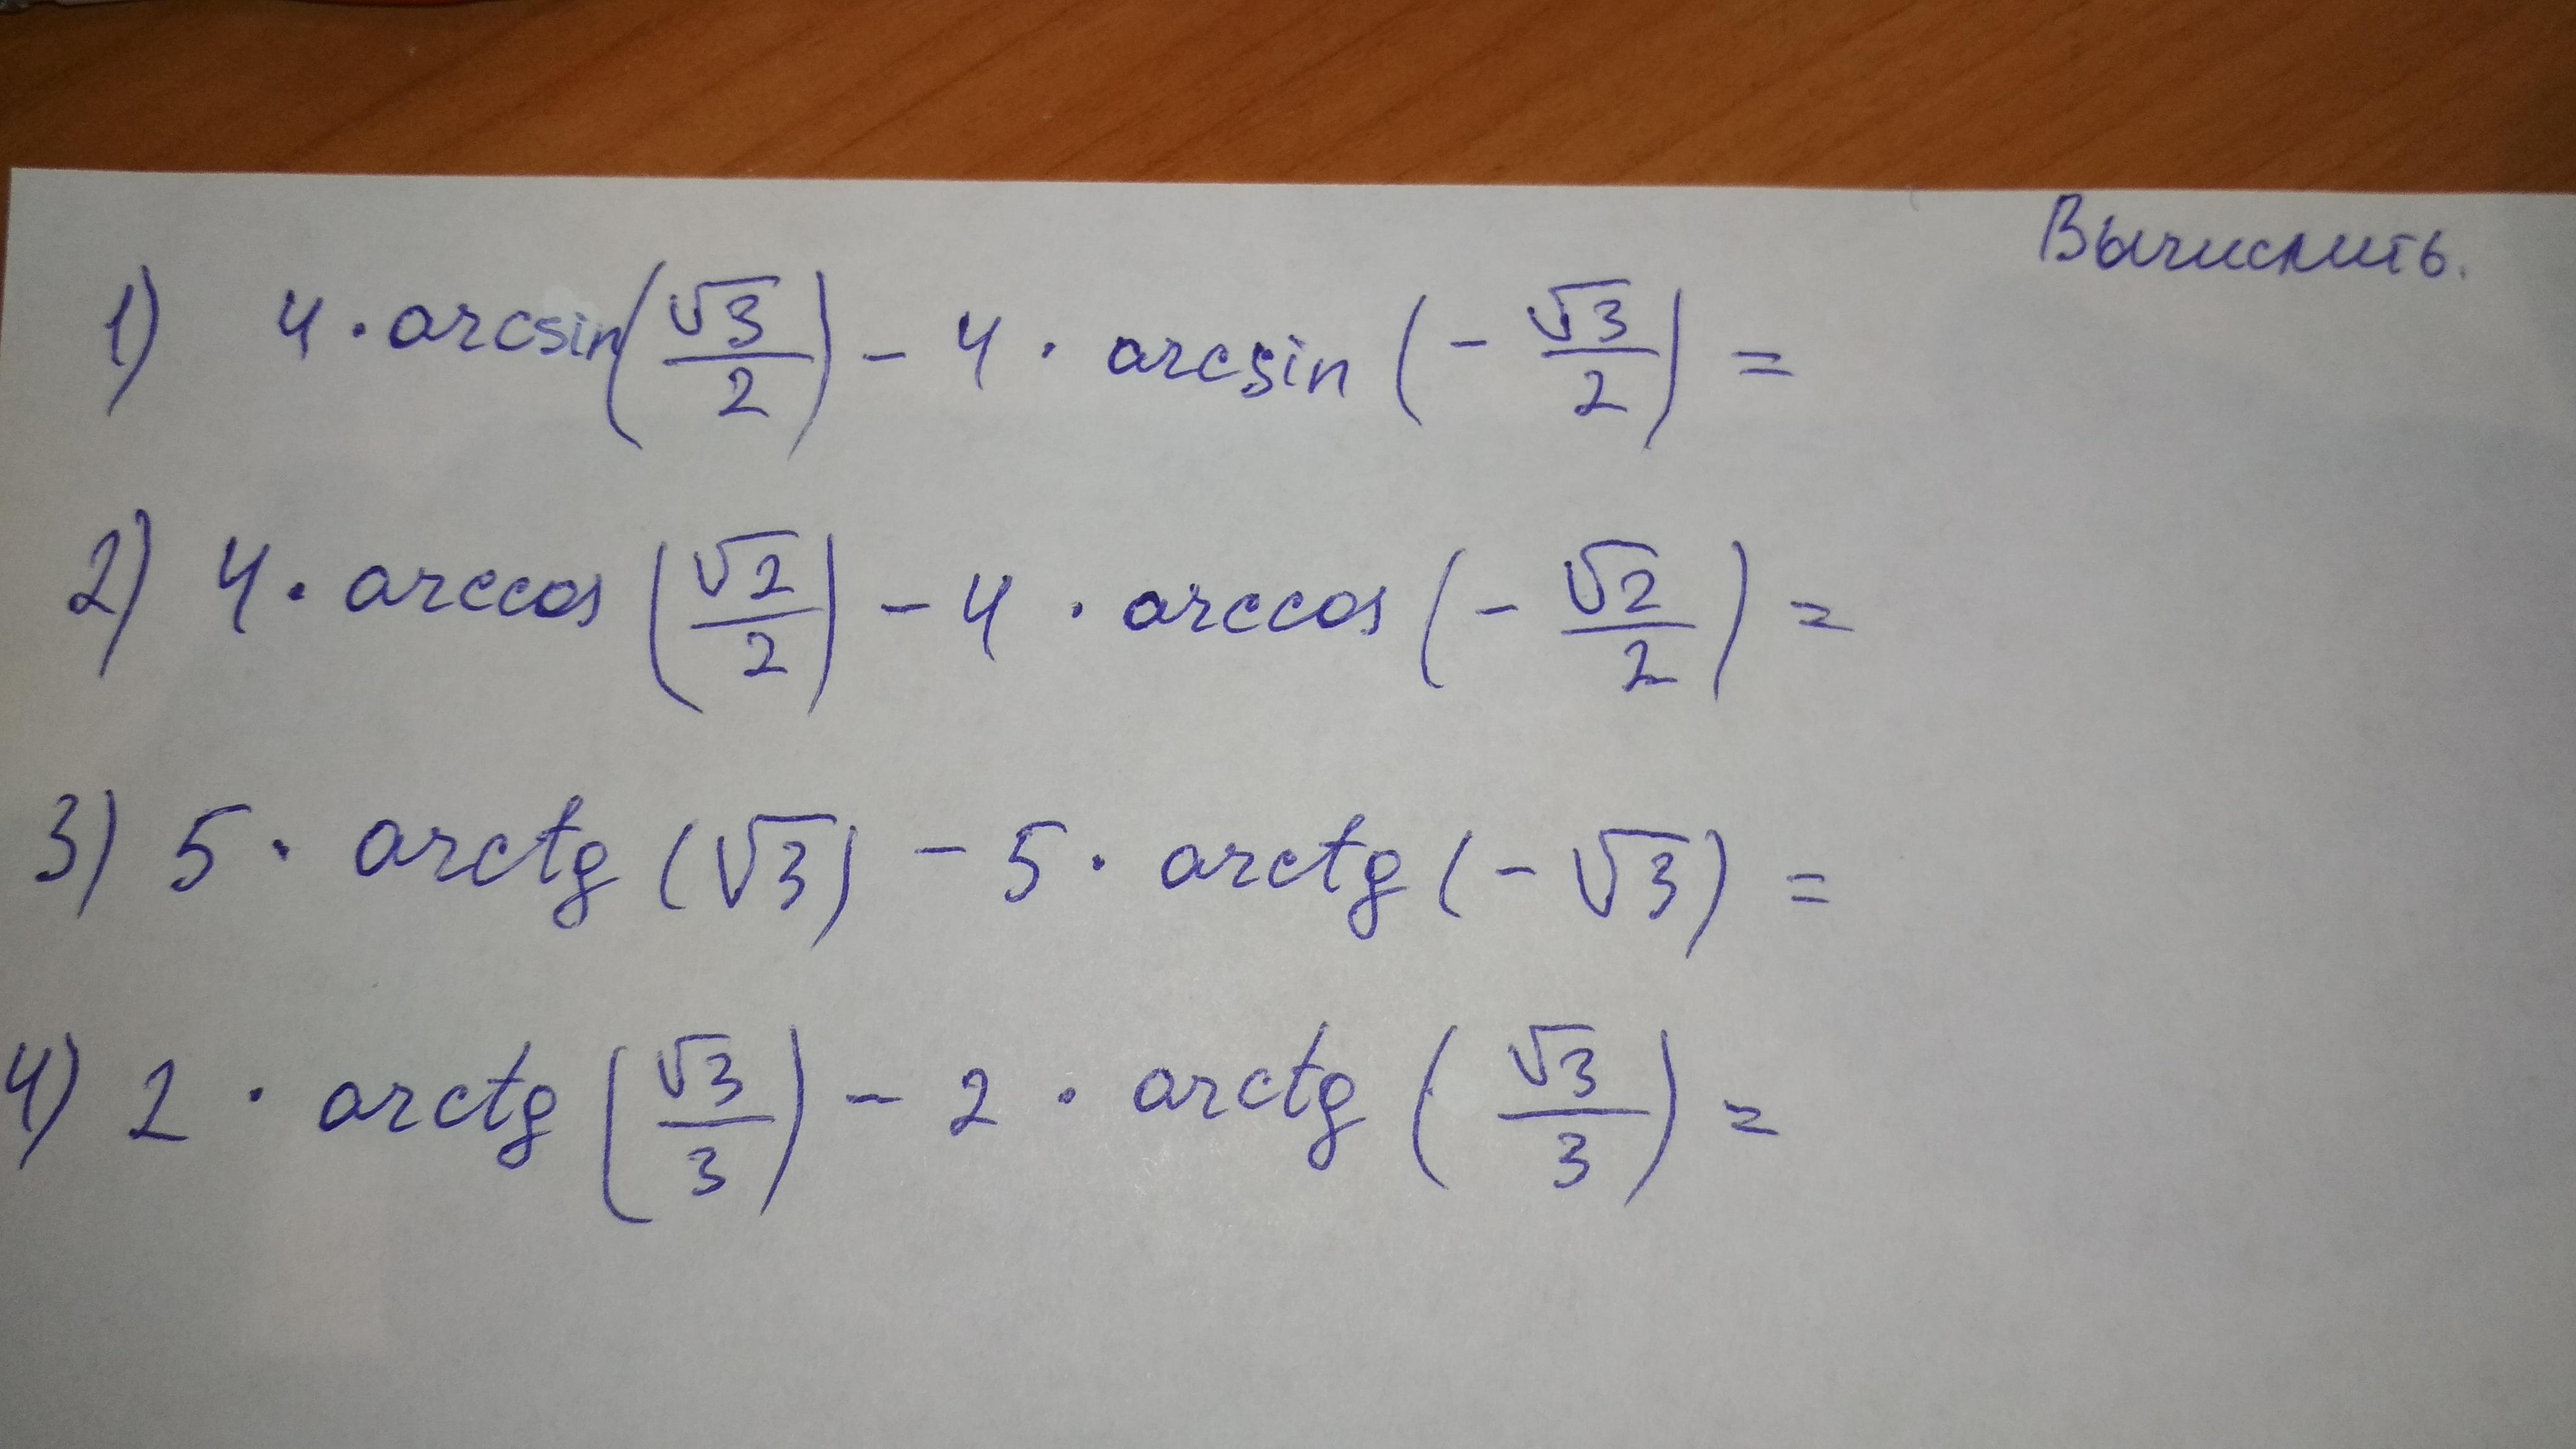 Вычислить.
1) 4 · arcsin(√3/2) - 4 · arcsin(-√3/2) =
2) 4 · arccos(√2/2) - 4 · arccos(-√2/2) =
3) 5 · arctg(√3) - 5 · arctg(-√3) =
4) 2 · arctg(√3/3) - 2 · arctg(√3/3) =